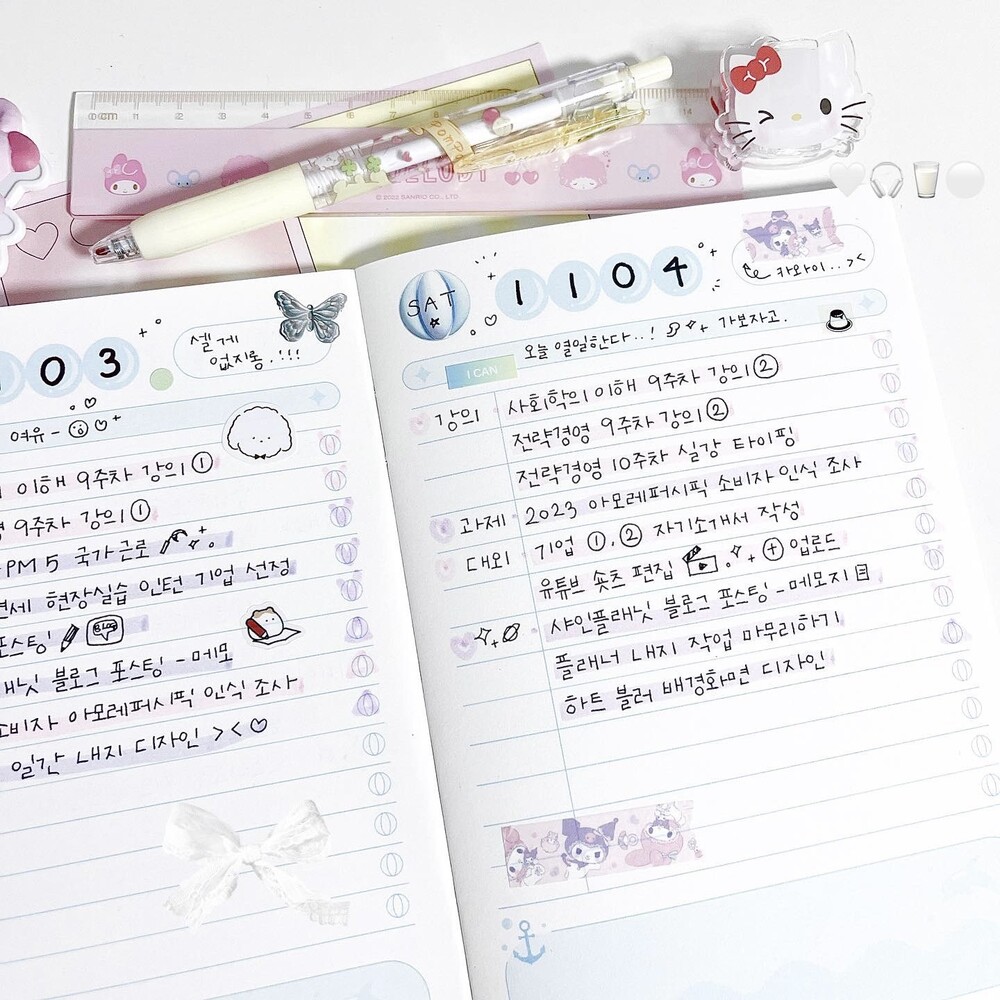 0cm 1 2 3 4 5 6 7 14
MELODY
© 2022 SANRIO CO., LTD.
03
셀게
없지롱.!!!
여유 -
이해 9주차 강의 ①
9주차 강의 ①
PM 5 국가근로
현장실습 인턴 기업 선정
포스팅 BLOG
블로그 포스팅 - 메모
소비자 아모레퍼시픽 인식 조사
일간 내지 디자인 > < ♡
SAT
1104
카와이..><
오늘 열일한다..! 가보자고.
I CAN
강의 사회학의 이해 9주차 강의 ②
전략경영 9주차 강의 ②
전략경영 10주차 실강 타이핑
과제 2023 아모레퍼시픽 소비자 인식 조사
대외 기업 ①,② 자기소개서 작성
유튜브 숏츠 편집 + 업로드
샤인플래닛 블로그 포스팅 - 메모지
플래너 내지 작업 마무리하기
하트 블러 배경화면 디자인